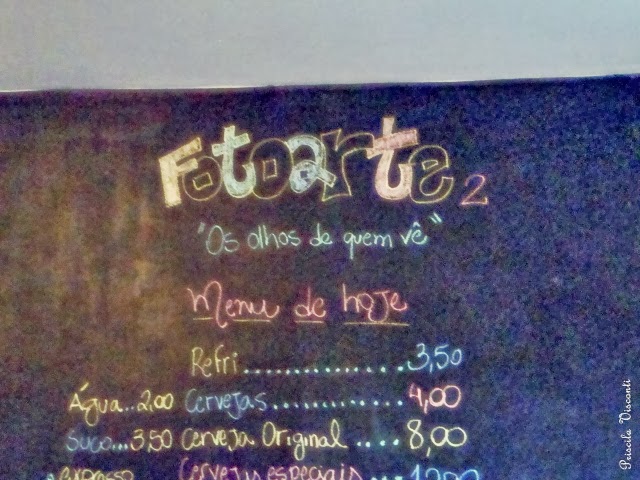 Fotoarte 2
"Os olhos de quem vê"
Menu de hoje
Refri..............3,50
Água...2,00 Cervejas............4,00
Suco...3,50 Cerveja Original ....8,00
expresso Cervejas especiais....12,00
Priscila Visconti